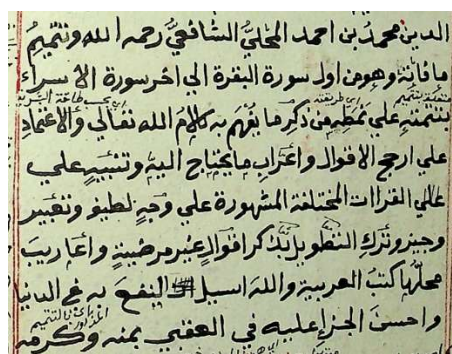 الدين محمد بن احمد المحلي الشافعي رحمه الله وتتميم
ما فاته وهو من اول سورة البقرة الي اخر سورة الاسراء
بتتمة علي نمطه من ذكر ما يفهم به كلام الله تعالي والاعتماد
علي ارجح الاقوال واعراب ما يحتاج اليه وتنبيه علي
علي القرات المختلفة المشهورة علي وجه لطيف وتعبير
وجيز وترك التطويل بذكر اقوال غير مرضية واعاريب
محلها كتب العربية والله اسيل النفع به في الدنيا
واحسن الجزا عليه في العقبي بمنه وكرمه